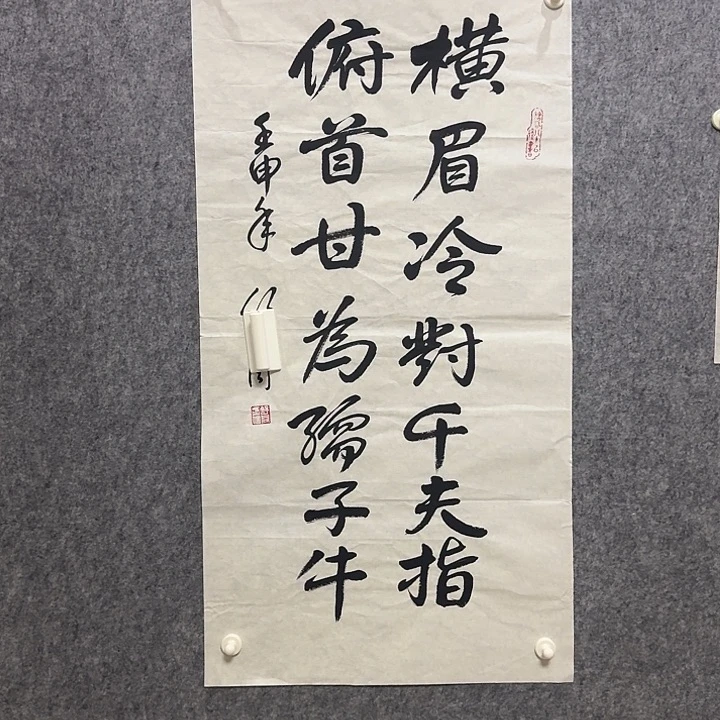 橫眉冷對千夫指
俯首甘為孺子牛
壬申年